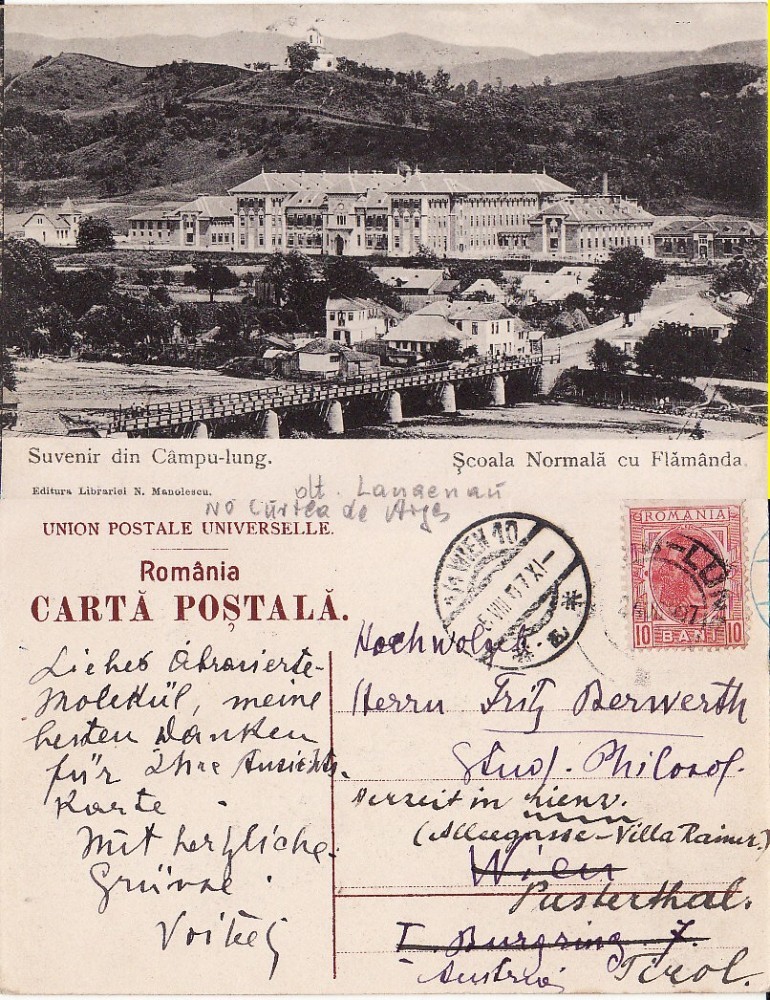 Suvenir din Câmpu-lung.
Școala Normală cu Flămânda.
Editura Librariei N. Manolescu.
dlt. Langenau
No Curtea de Argeș
UNION POSTALE UNIVERSELLE.
România
CARTĂ POȘTALĂ.
ROMANIA
10 BANI 10
WIEN 10
XI–
Liebes
Molekül, meine
besten Danken
für Ihre Ansichts-
Karte.
Mit herzliche
Grüsse.
Hochwolgeb
Herrn Fritz Berwerth
Stud. Philosof.
derzeit in Lienz.
(Alleegasse–Villa Rainer.)
Wien
Pusterthal.
I. Burgring 7.
Austria
Tirol.